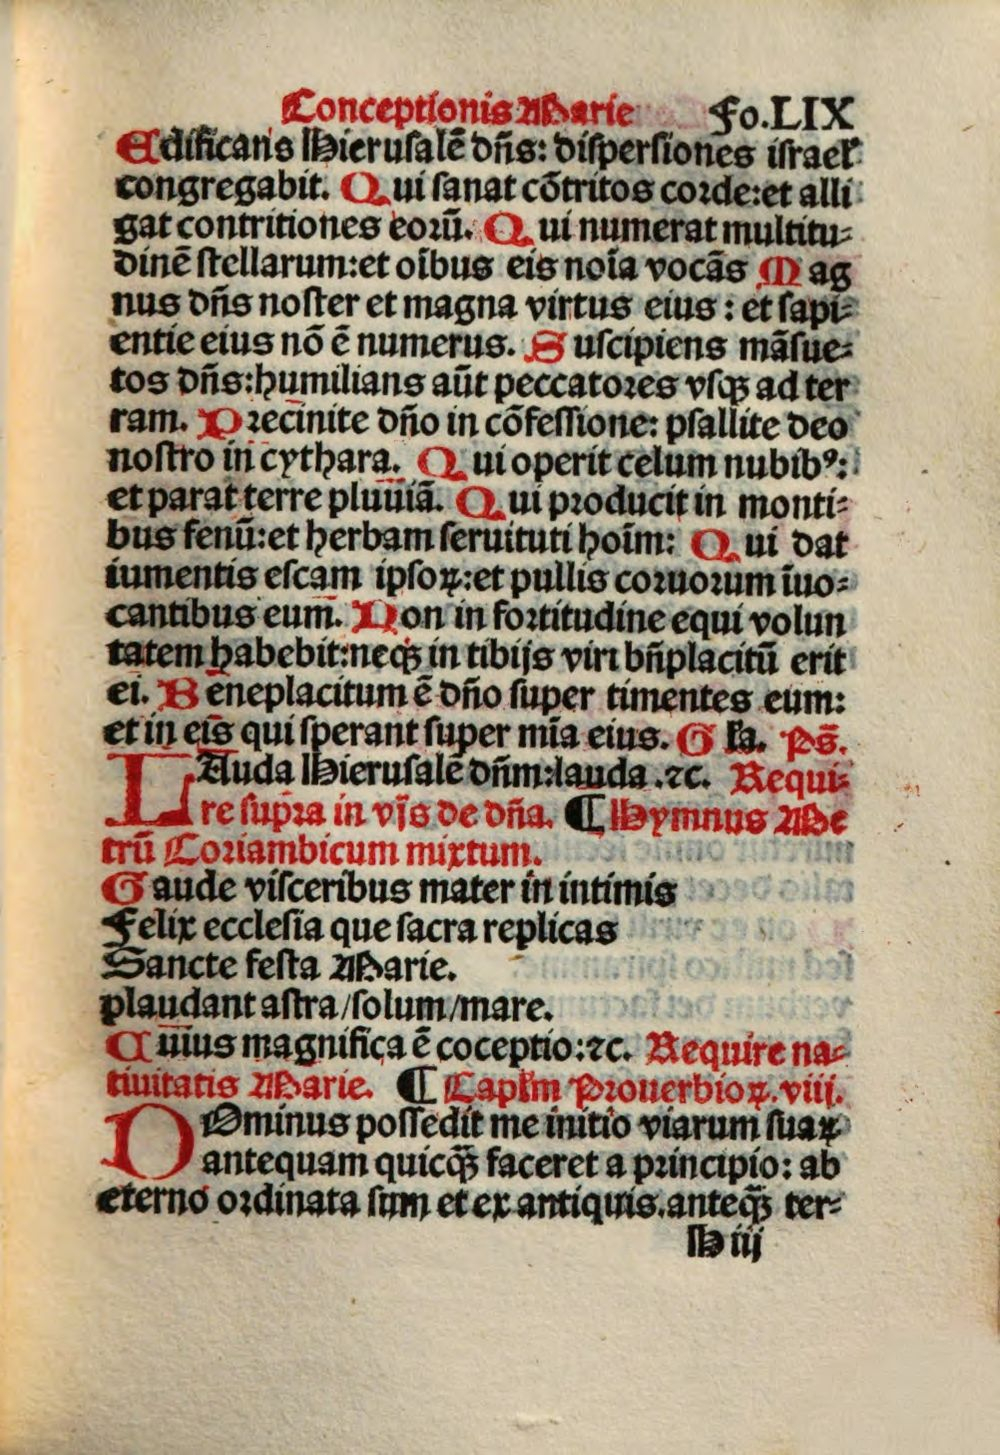 Conceptionis Marie Fo.LIX
Edificans Hierusalē dn̄s: dispersiones israel
congregabit. Qui sanat cōtritos corde:et alli
gat contritiones eorū. Qui numerat multitu⸗
dinē stellarum:et oībus eis noīa vocās Mag
nus dn̄s noster et magna virtus eius : et sapi⸗
entie eius nō ē numerus. Suscipiens māsue⸗
tos dn̄s:humilians aūt peccatores vsqꝫ ad ter
ram. Precinite dn̄o in cōfessione: psallite deo
nostro in cythara. Qui operit celum nubibꝰ:
et parat terre pluuiā. Qui producit in monti⸗
bus fenū:et herbam seruituti hoīm: Qui dat
iumentis escam ipsoꝝ:et pullis coruorum īuo⸗
cantibus eum. Non in fortitudine equi volun
tatem habebit:neqꝫ in tibijs viri bn̄placitū erit
ei. Beneplacitum ē dn̄o super timentes eum:
et in eis qui sperant super mīa eius. Gla. Ps̄.
LAuda Hierusalē dn̄m:lauda .⁊c. Requi⸗
re supra in vṡs de dn̄a. ¶ Hymnus Me
trū Coriambicum mixtum.
Gaude visceribus mater in intimis
Felix ecclesia que sacra replicas
Sancte festa Marie.
plaudant astra/solum/mare.
Cuius magnifica ē coceptio:⁊c. Require na⸗
tiuitatis Marie. ¶ Capl̄m Prouerbioꝝ.viij.
DOminus possedit me initio viarum suaꝝ
antequam quicqꝫ̄ faceret a principio: ab
eterno ordinata sum et ex antiquis.anteqꝫ̄ ter⸗
H iij